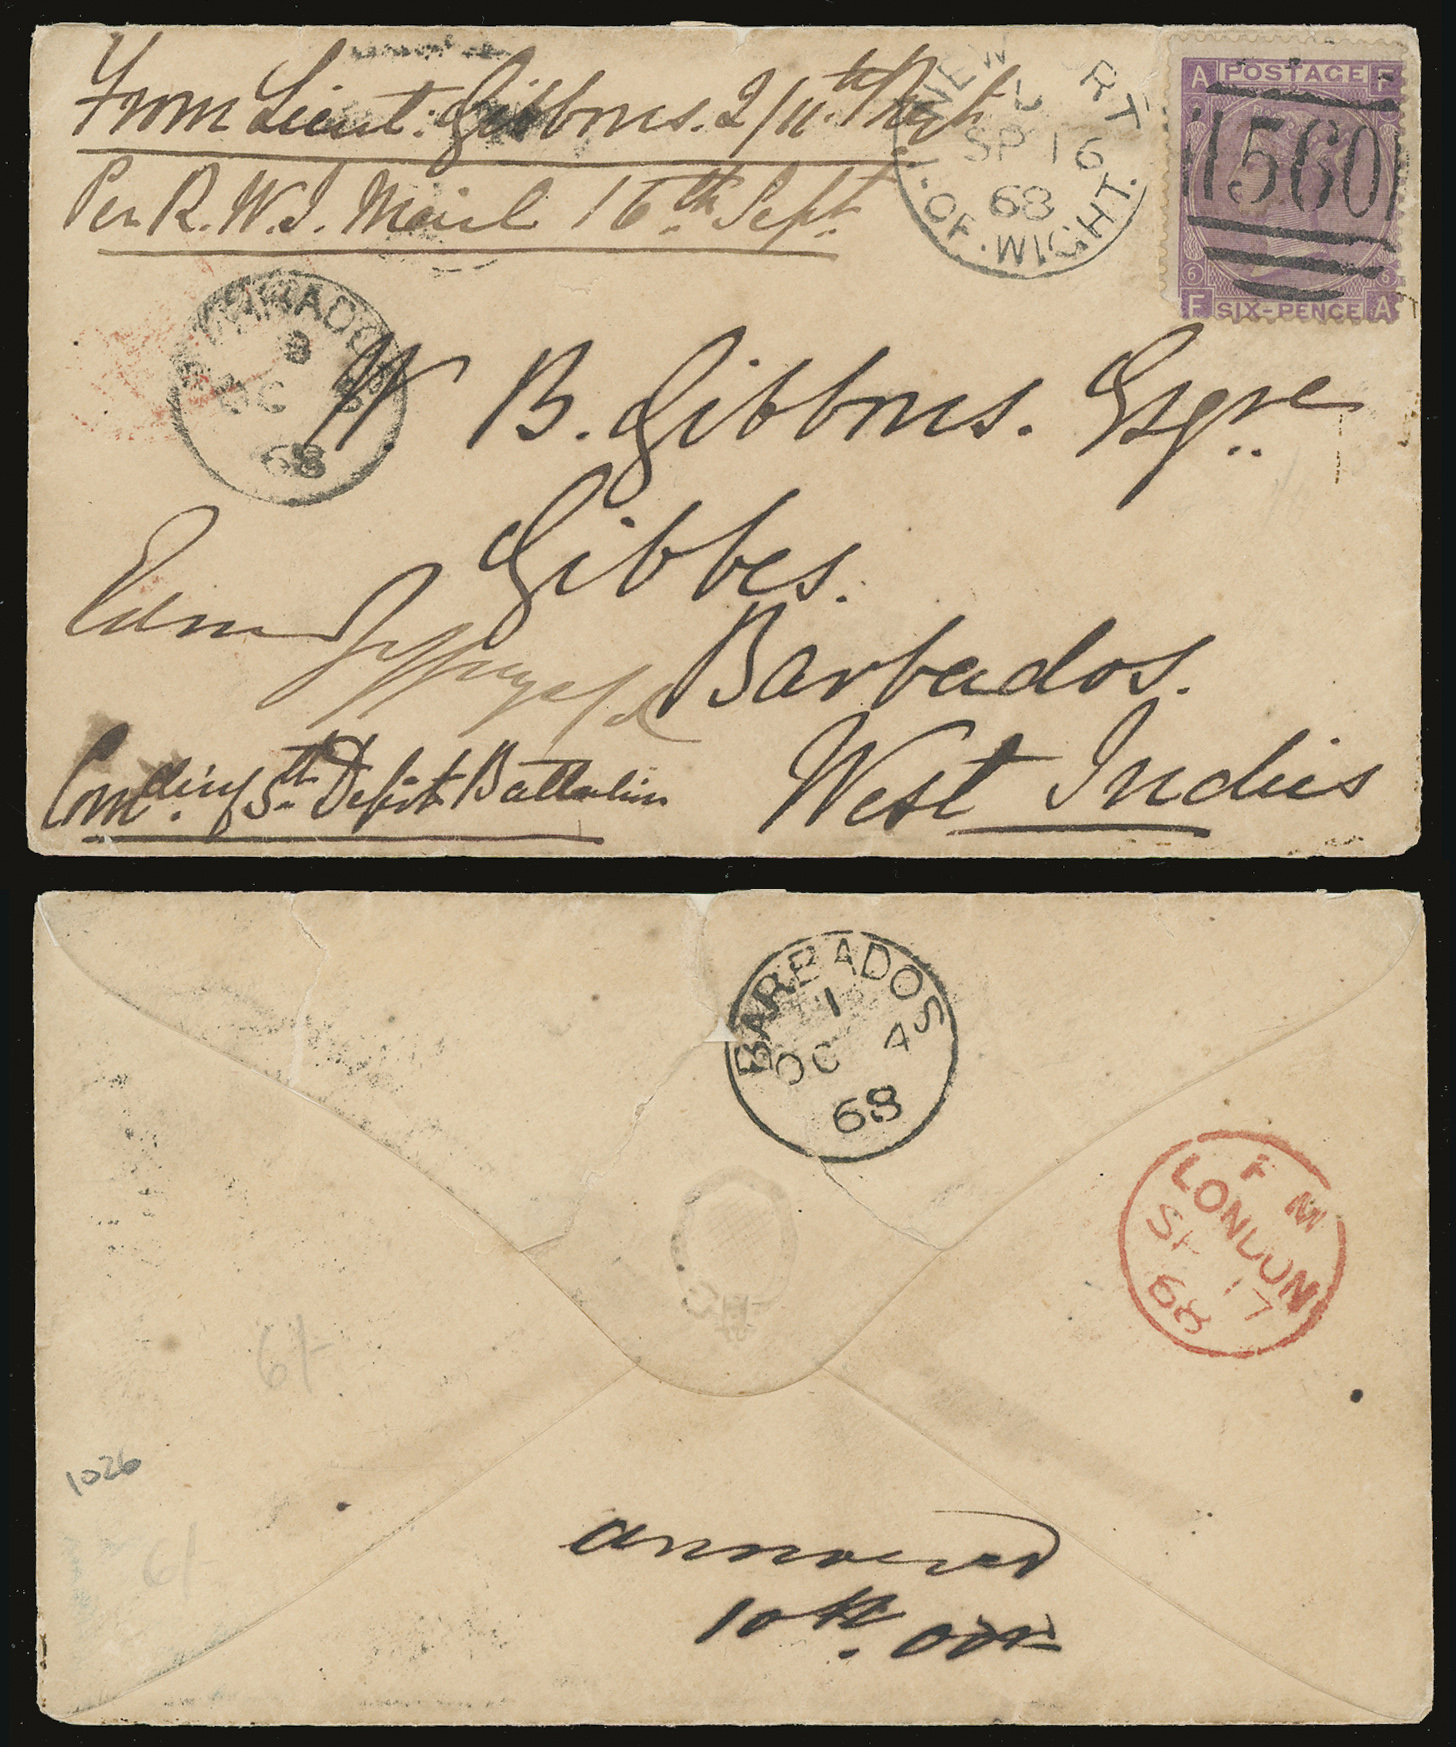 From Lieut. Gibbons. 2/11th Regt
Per R. W. I. Mail 16th Sept.
NEW RT
SP 16
68
I. OF. WIGHT.
A POSTAGE F
560
6 6
F SIX-PENCE A
BARBADOS
OC
68
W. B. Gibbons. Esqre
Gibbes.
Barbados.
West Indies
Comding 5th Depôt Battalion
BARBADOS
1
OC
68
LONDON
SP 17
68
6/-
1026
6/-
answered
10th. Octr